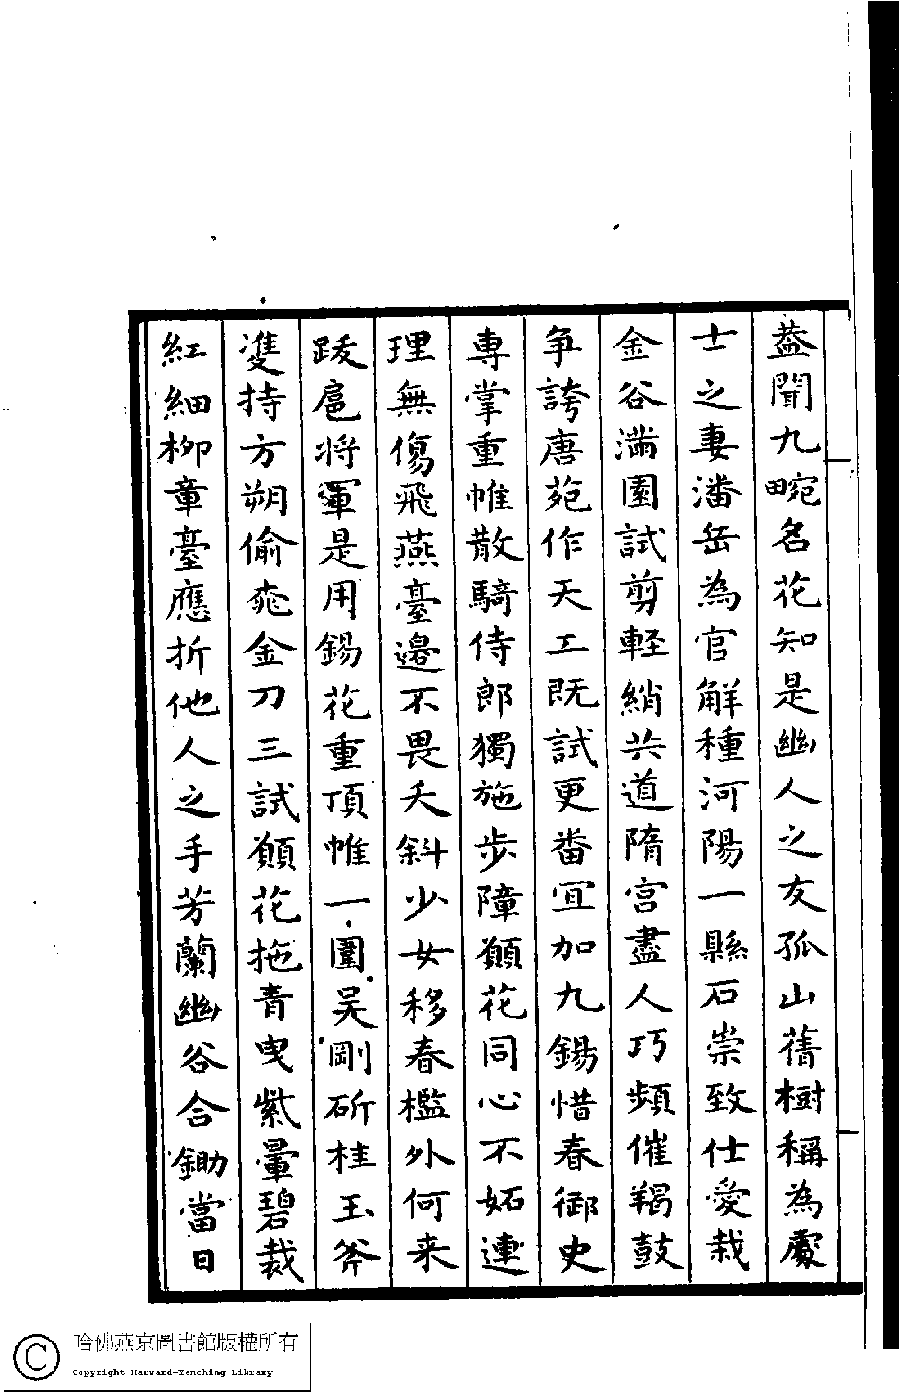 蓋聞九畹名花知是幽人之友孤山舊樹稱為處
士之妻潘岳為官解種河陽一縣石崇致仕愛栽
金谷滿園試剪輕綃共道隋宮盡人巧頻催羯鼓
爭誇唐苑作天工既試更番宜加九錫惜春御史
專掌重帷散騎侍郎獨施步障願花同心不妬連
理無傷飛燕臺邊不畏夭斜少女移春檻外何来
跋扈将軍是用錫花重頂帷一圍吴剛斫桂玉斧
雙持方朔偷桃金刀三試願花拖青曳紫暈碧裁
紅細柳章臺應折他人之手芳蘭幽谷合鋤當日
哈佛燕京圖書館版權所有
Copyright Harvard-Yenching Library